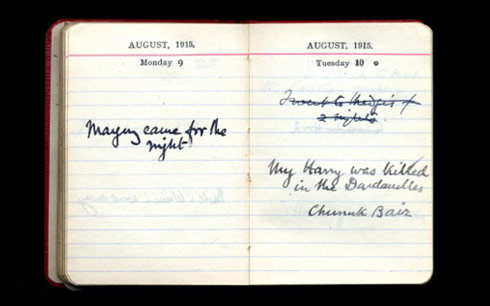 AUGUST, 1915.
Monday 9
Mayny came for the
night
AUGUST, 1915.
Tuesday 10
I went to for
2 nights
My Harry was killed
in the Dardanelles
Chunuk Bair